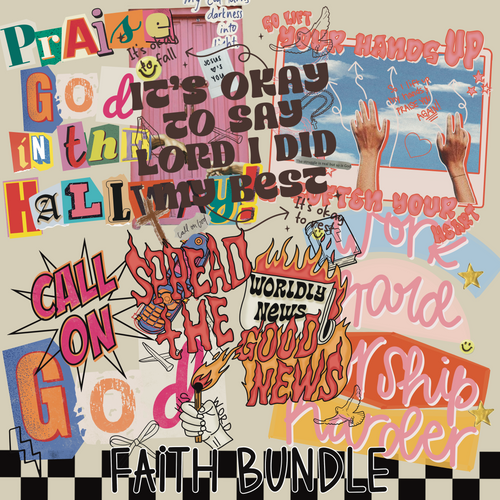 my call turns
darkness
into
light
Praise
It's okay
to fall
God
Jesus
♥'s you
in the
HALLWAY!
IT'S OKAY
TO SAY
LORD I DID
MY BEST
GO LIFT
YOUR HANDS UP
SOFTEN YOUR
HEART
It's okay
to rest
Call on God
CALL
ON
God
SPREAD
THE
GOOD
NEWS
WORLDLY
NEWS
WORD
work
hard
worship
harder
FAITH BUNDLE